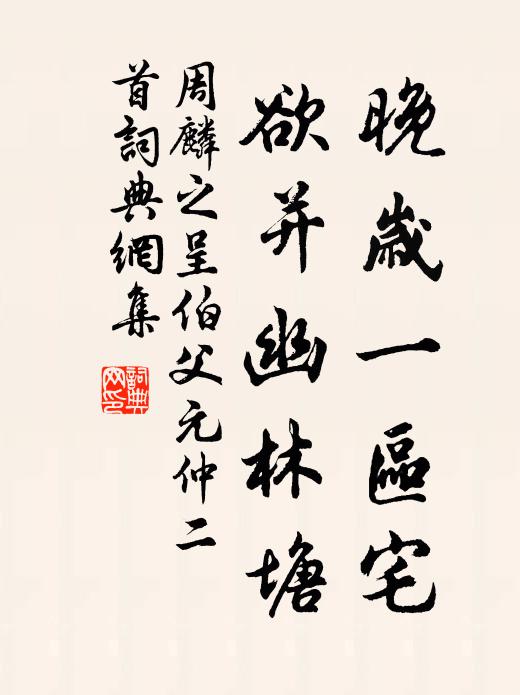 晚歲一區宅
欲并幽林塘
周麟之呈伯父元仲二
首詞典網集
詞典網印